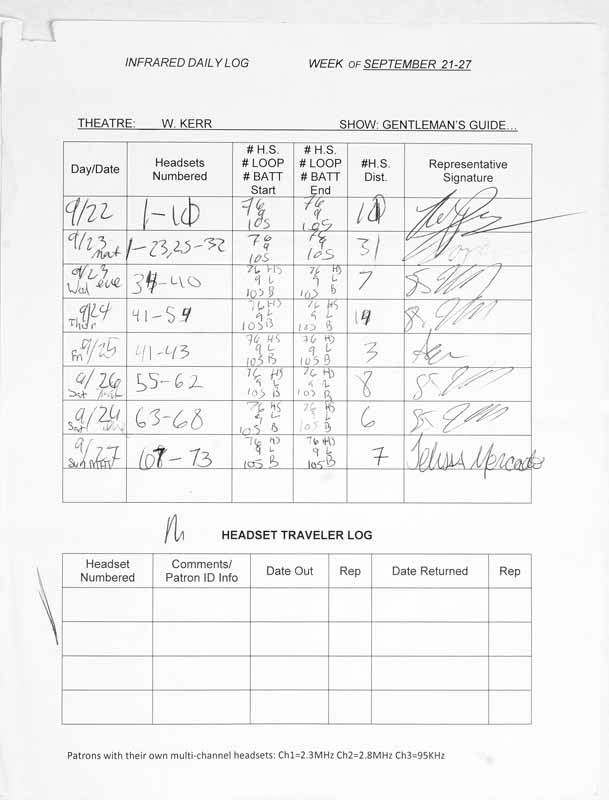 INFRARED DAILY LOG WEEK OF SEPTEMBER 21-27
THEATRE: W. KERR SHOW: GENTLEMAN'S GUIDE...
Day/Date
Headsets
Numbered
# H.S.
# LOOP
# BATT
Start
# H.S.
# LOOP
# BATT
End
#H.S.
Dist.
Representative
Signature
9/22
1-10
76
9
105
76
9
105
10
9/23
mat
1-23,25-32
76
9
105
76
9
105
31
9/23
Wed eve
34-40
76 HS
9 L
105 B
76 HS
9 L
105 B
7
9/24
Thur
41-54
76 HS
9 L
105 B
76 HS
9 L
105 B
14
9/25
Fri
41-43
76 HS
9 L
105 B
76 HS
9 L
105 B
3
9/26
Sat mat
55-62
76 HS
9 L
105 B
76 HS
9 L
105 B
8
9/26
Sat eve
63-68
76 HS
9 L
105 B
76 HS
9 L
105 B
6
9/27
Sun mat
67-73
76 HS
9 L
105 B
76 HS
9 L
105 B
7
Telissa Mercado
HEADSET TRAVELER LOG
Headset
Numbered
Comments/
Patron ID Info
Date Out
Rep
Date Returned
Rep
Patrons with their own multi-channel headsets: Ch1=2.3MHz Ch2=2.8MHz Ch3=95KHz